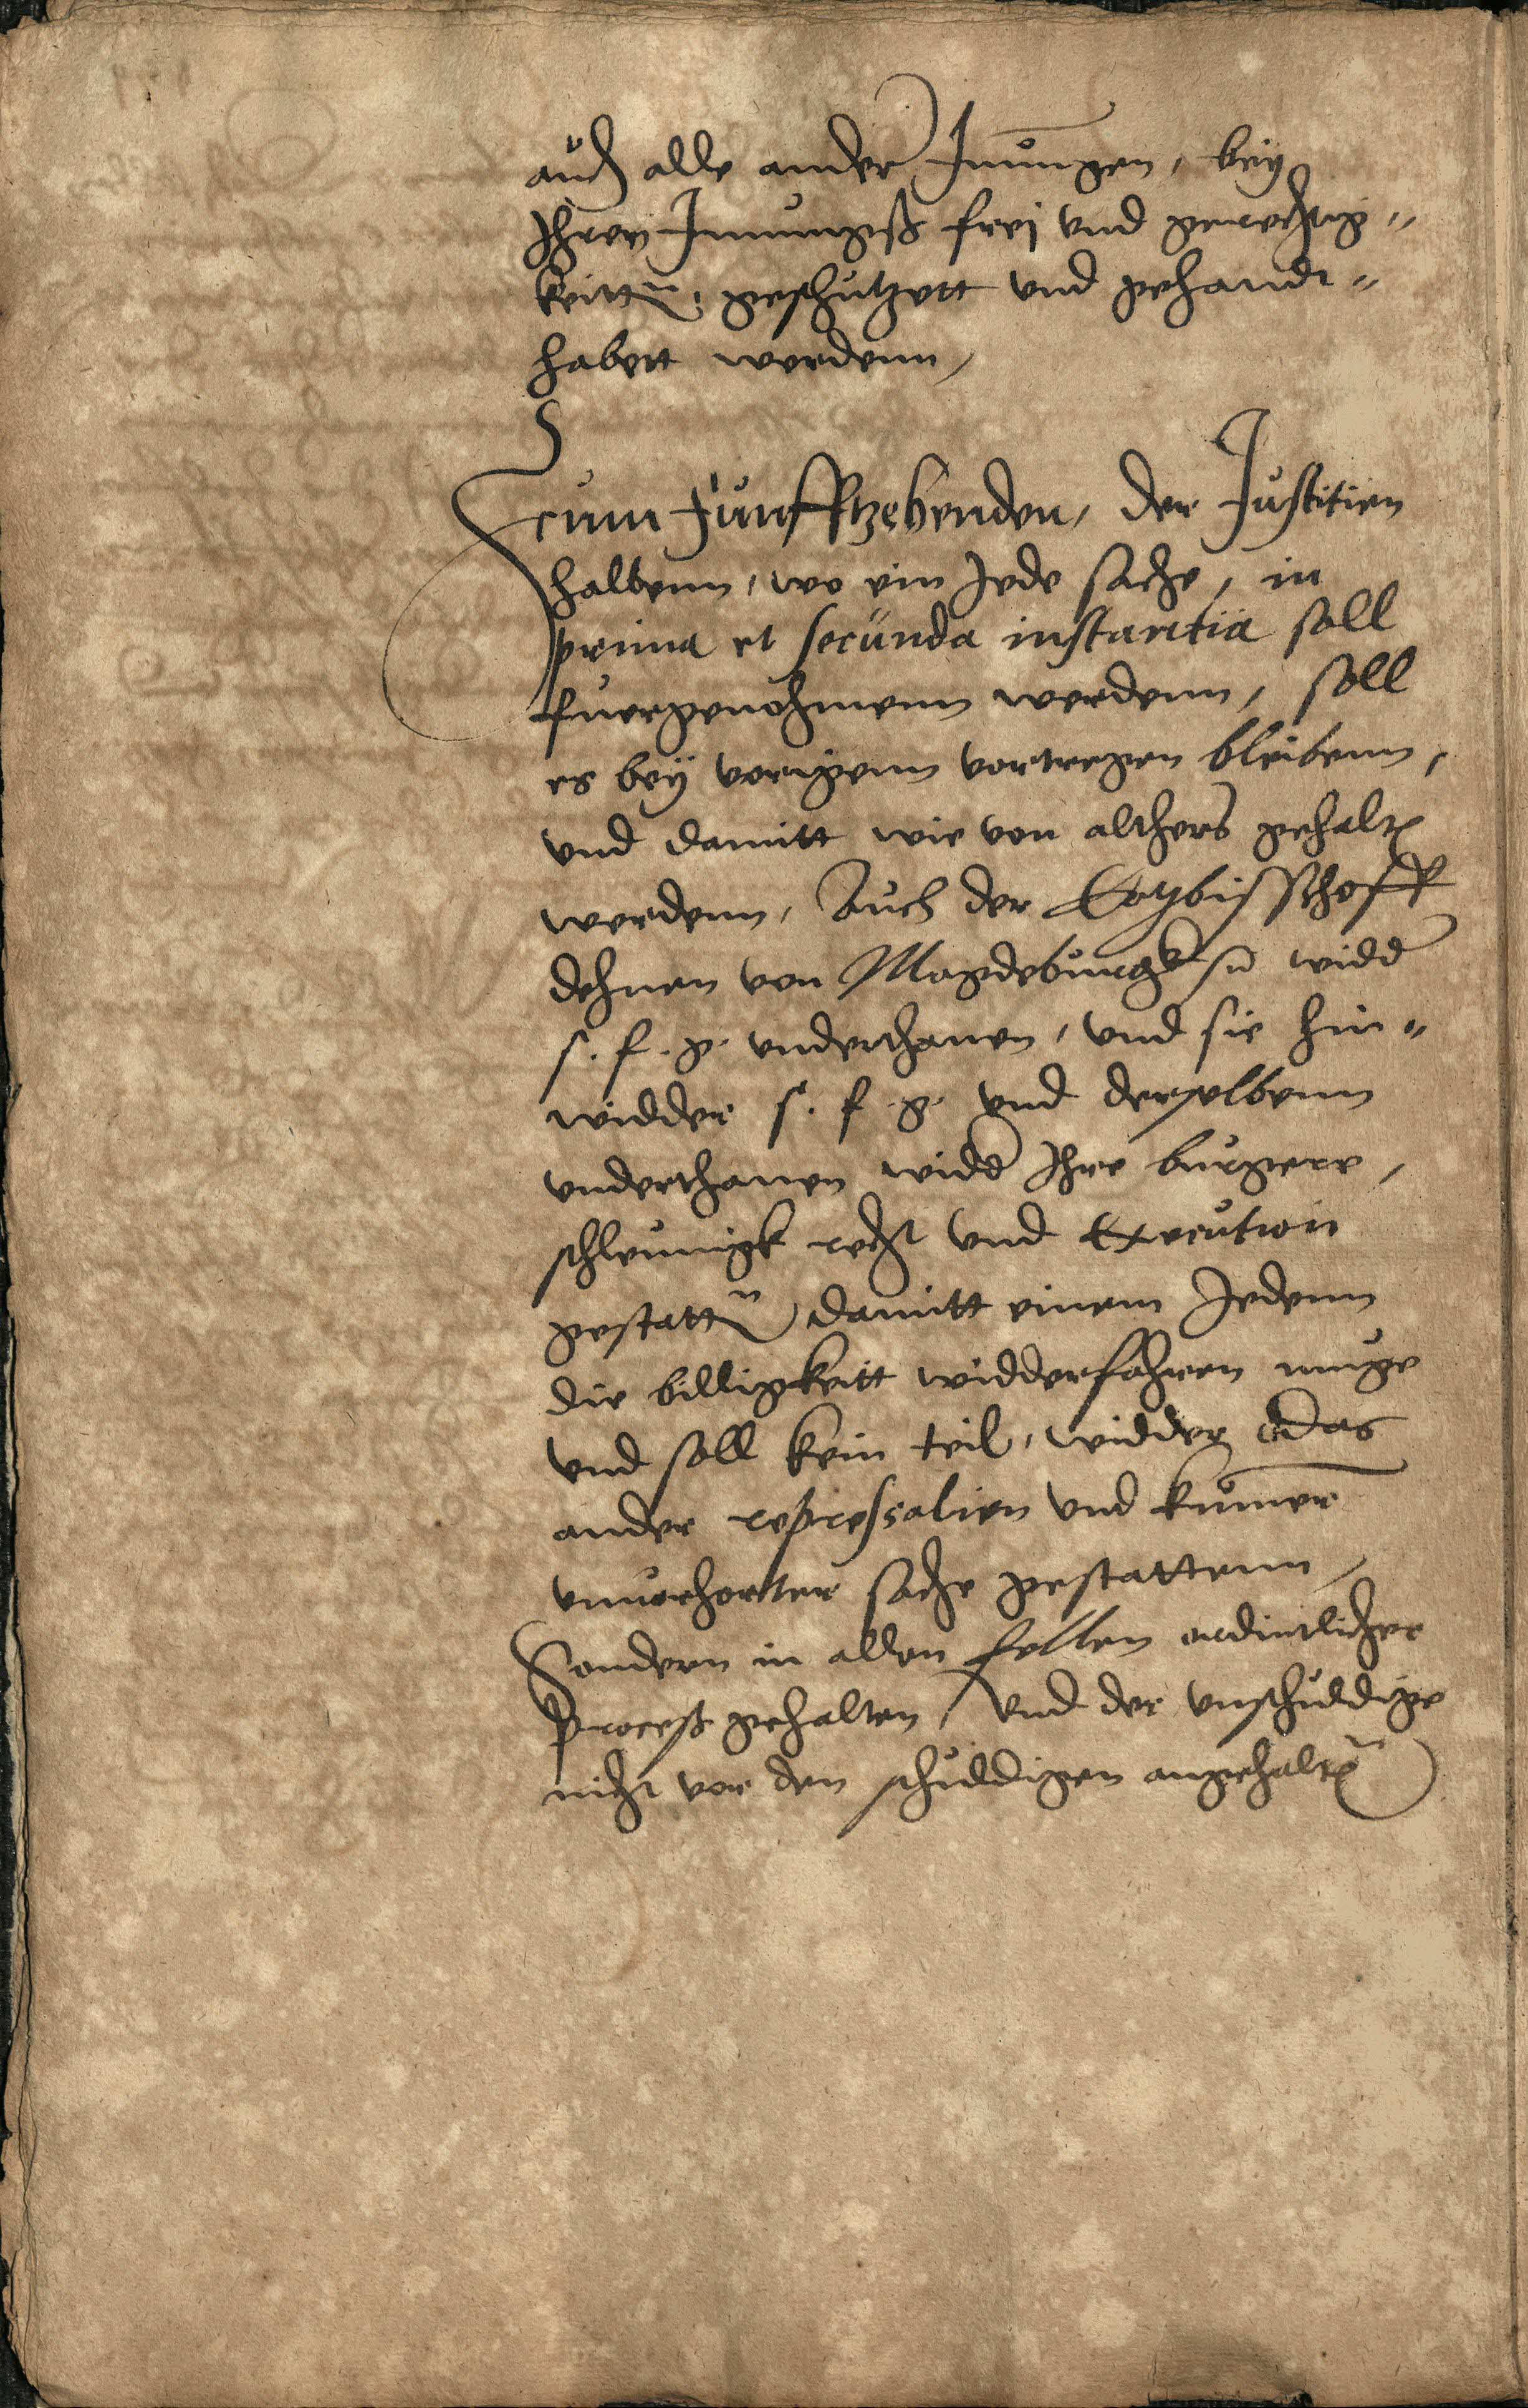 auch alle ander Innungen, bey
Ihren Innungeß frej vnd gerechtig„
keitt̃n: geschutzett vnd gehandt„
habett werdenn,
Zcum Funfftzehenden, der Justitien
halbenn, wo ein Jede sache, in
prima et secunda instantia soll
fuergenohmenn werdenn, soll
es bey vorigenn vortregen bleibenn,
vnd damitt wie von althers gehaltẽ
werdenn, Auch der Ertzbisschoff
dehnen von Magdeburgk widd̃
s. f. g. vnderthanen, vnd sie hin„
widder s. f. g. vnd derselbenn
vnderthanen widd̃ Ihre burgere,
schleunigk recht vnd Execution
gestattñ damitt einem Jedenn
die billigkeitt widderfahren muge
vnd soll kein teil, widder das
ander repressalien vnd kum̄er
vnuorhorter sache gestattenn,
Sondern in allen fellen ordentlicher
Proceß gehalten, vnd der vnschuldige
nicht vor den schuldigen angehaltñ